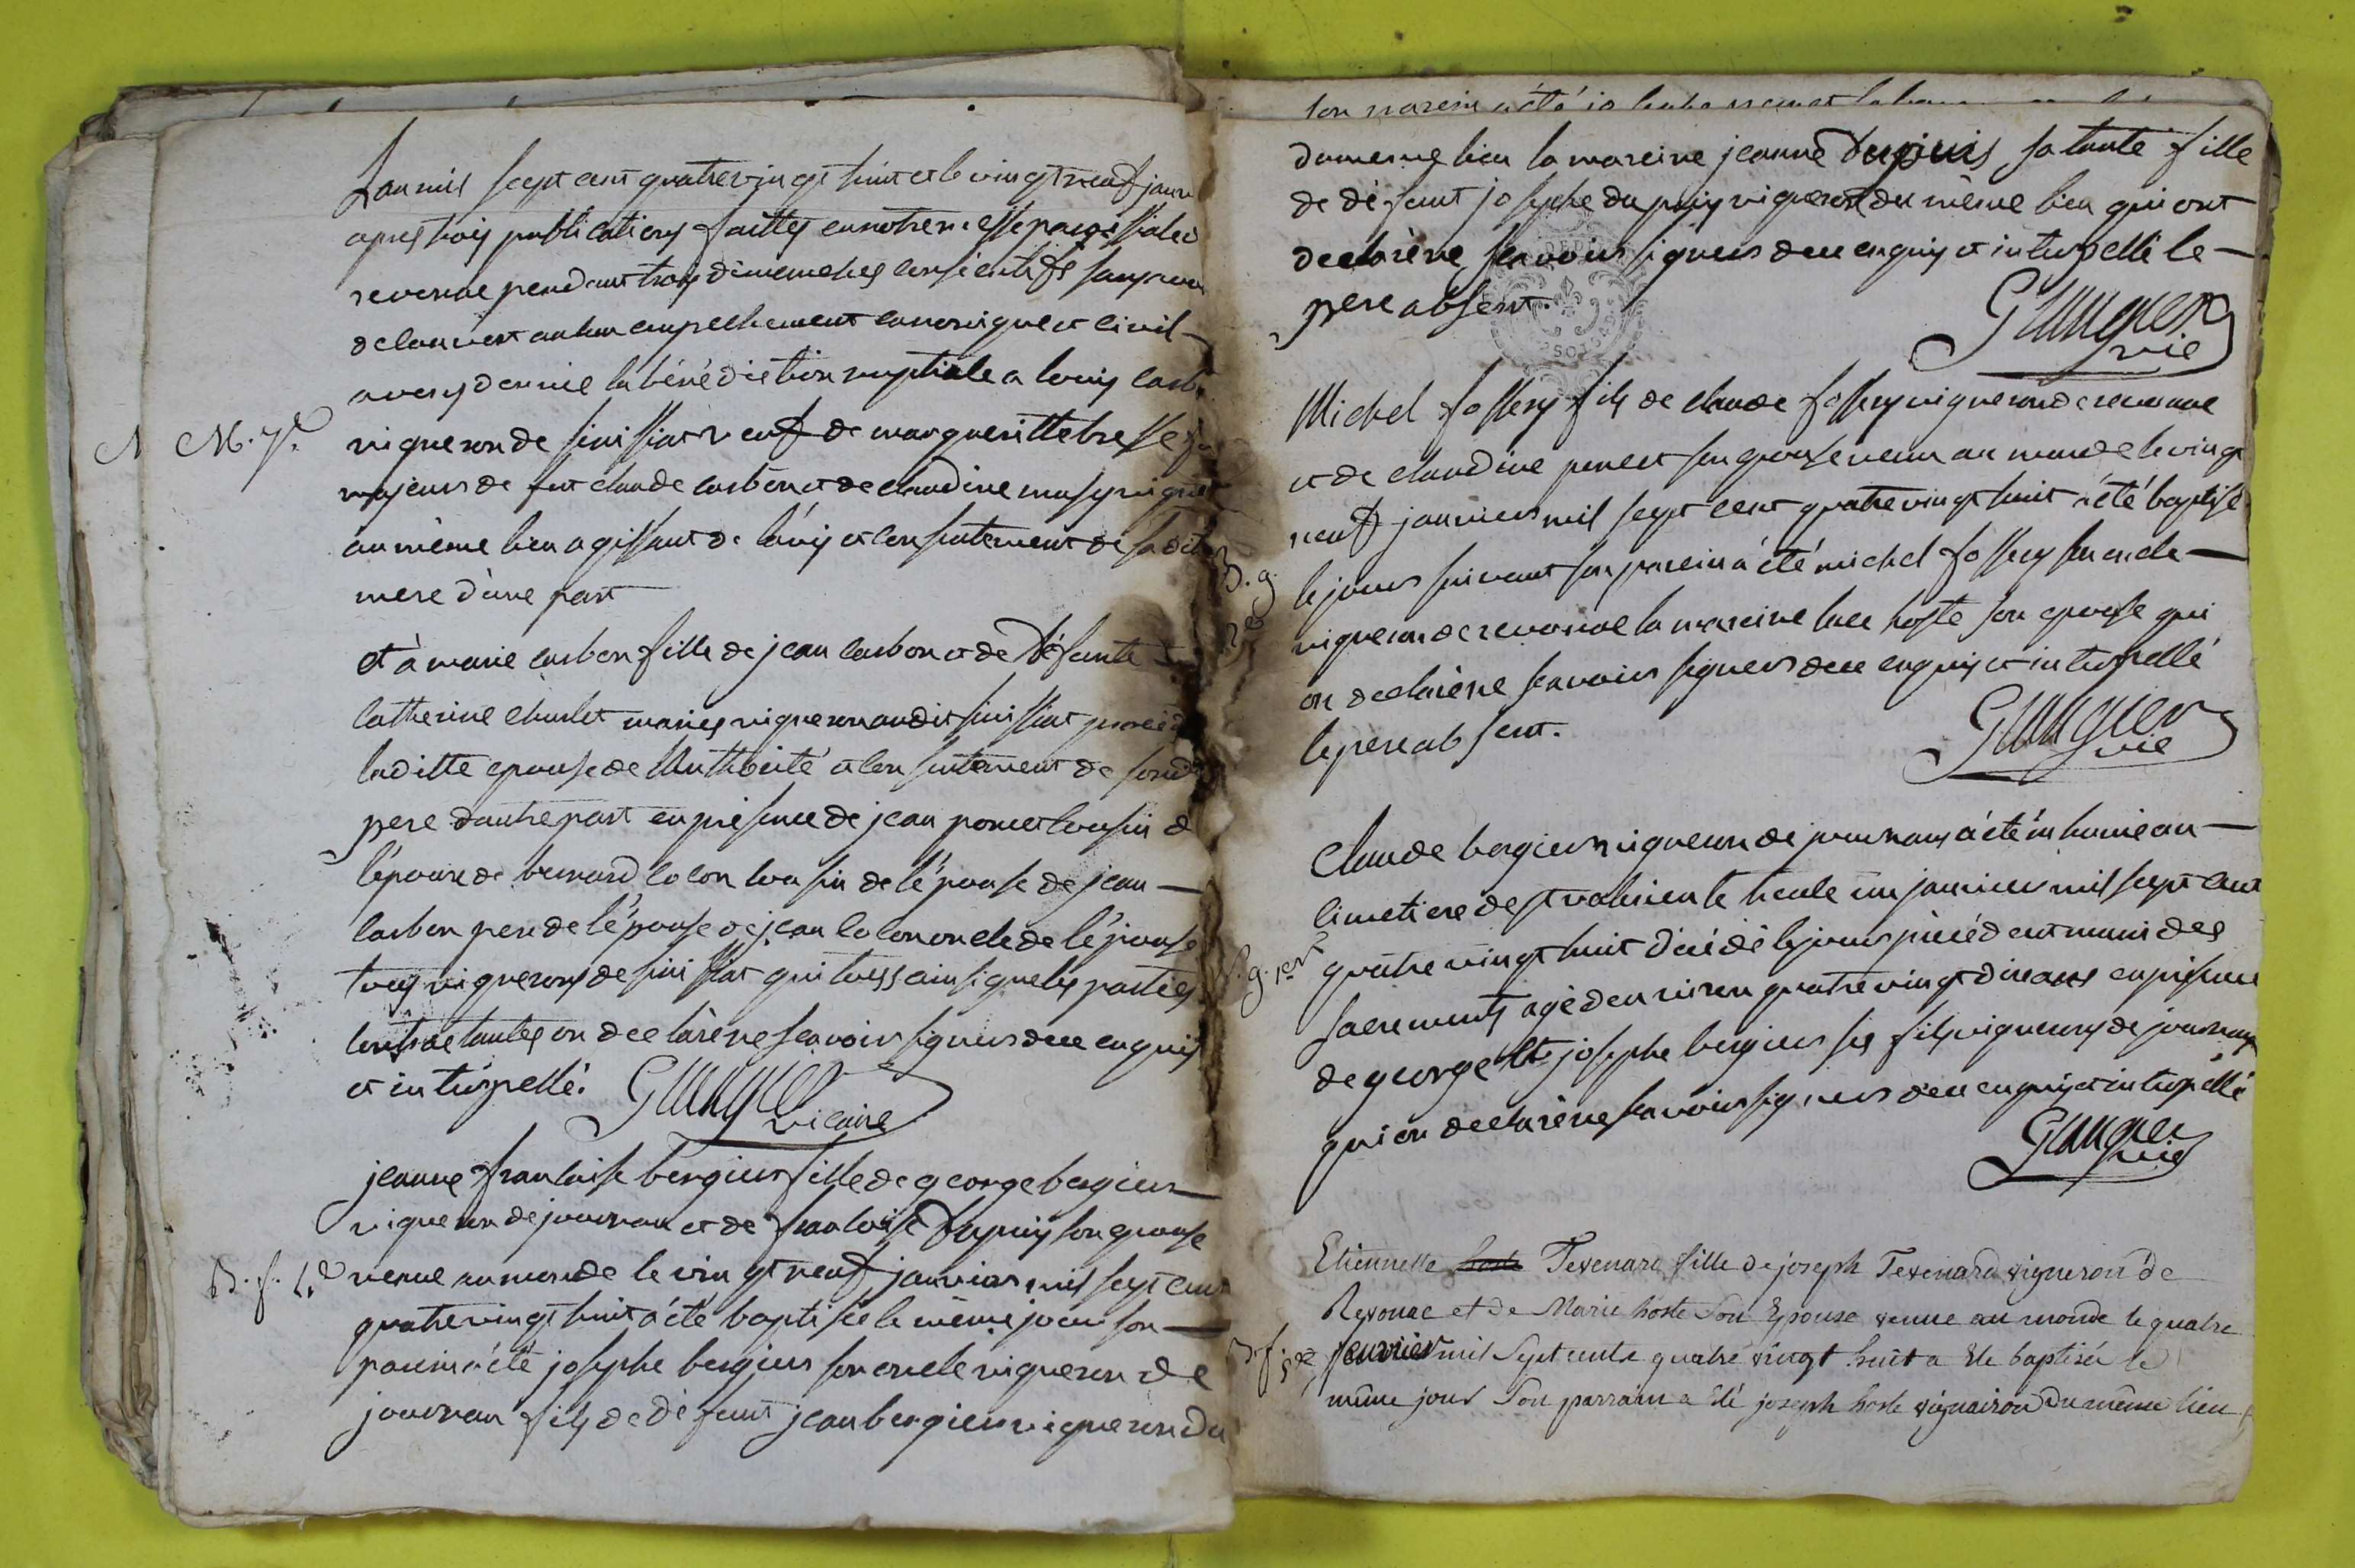 L'an mil sept cent quatre vingt huit et le vingt neuf janv
apres trois publications faittes en notre messe paroissiale de
revonne pendant trois dimenches consecutifs sans avoir
decouvert aucun empechement canonique et civil
avons donné la bénédiction nuptiale a louis carbon
M. 7e
vigneron de simissiat veuf de marguerittebresse fils
majeur de feu claude carbon et de claudine vigneron
au même lieu agissant de l'avis et consentement de sa ditte
mere d'une part
et à marie carbon fille de jean carbon et de défunte
catherine charlet mariés vigneron audit simissiat procéd
laditte epouse de l'authorité et consentement de sondit
pere d'autre part en présence de jean poncet cousin de
l'epoux de bernard colon cousin de l'épouse de jean
carbon pere de l'épouse de jean colon oncle de l'épouse
tous vignerons de simissiat qui tous ainsi que les parties
contractantes on declarène scavoir signer de ce enquis
et interpellé. Grangier
vicaire
jeanne francoise bergier fille de george bergier
vigneron de journan et de francoise dupuis son epouse
B. f. 4e venue au monde le vingt neuf janvier mil sept cent
quatre vingt huit a été baptisée le même jour son
parein a été josephe bergier son oncle vigneron de
journan fils de défunt jean bergier vigneron du
du meme lieu la mareine jeanne dupuis sa tante fille
de défunt josephe dupuy vigneron du même lieu qui ont
declarène scavoir signer de ce enquis et interpellé le
pere absent.
Grangier
vic
Michel fossery fils de claude fossery vigneron de revonne
et de claudine poncet son epouse venu au monde le vingt
neuf janvier mil sept cent quatre vingt huit a été baptisé
B. g. 2e
le jour suivant son parein a été michel fossery son oncle
vigneron de revonne la mareine luce hoste son epouse qui
on declarène scavoir signer de ce enquis et interpellé
le pere absent.
Grangier
vic
Claude bergier vigneron de journans a été inhumé au
cimetiere de st valerien le trente un janvier mil sept cent
S. g. 1er
quatre vingt huit décédé le jour précédent muni des
sacrements agé d'environ quatre vingt dix ans en présence
de george et josephe bergier ses fils vignerons de journans
qui on declarène scavoir signer de ce enquis et interpellé
Grangier
vic
Etiennette hoste Tevenard fille de joseph Tevenard vigneron de
Revonne et de Marie hoste Son Epouse venue au monde le quatre
B. f. 5e fevrier mil Sept cents quatre vingt huit a Ete baptisée le
même jour Son parrain a Eté joseph hoste vignairon du même lieu